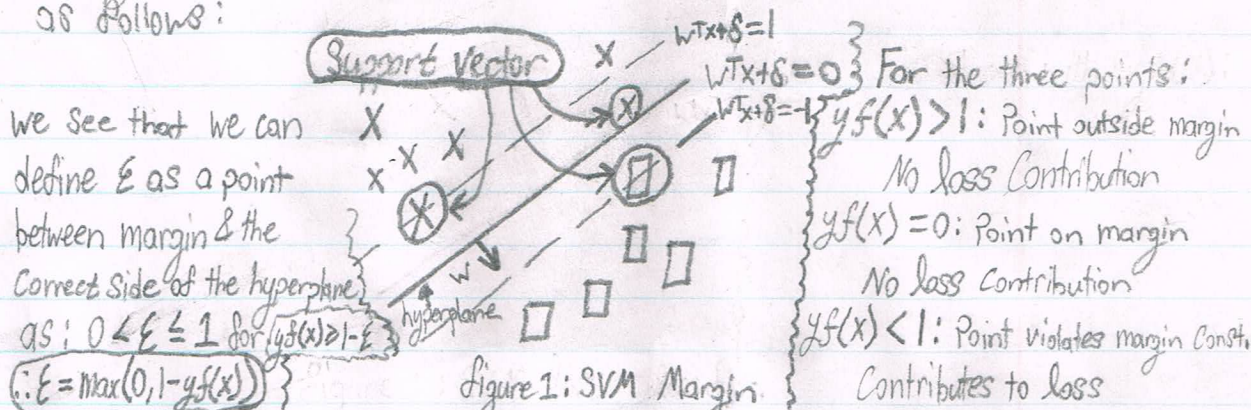 as follows:
we see that we can
define ξ as a point
between margin & the
Correct side of the hyperplane
as: 0 < ξ ≤ 1 for yf(x) ≥ 1-ξ
∴ ξ = max(0, 1-yf(x))
Support vector
wᵀx+δ=1
wᵀx+δ=0
wᵀx+δ=-1
w
hyperplane
figure 1: SVM Margin
For the three points:
yf(x) > 1: Point outside margin
No loss Contribution
yf(x) = 0: Point on margin
No loss Contribution
yf(x) < 1: Point violates margin Const.
Contributes to loss